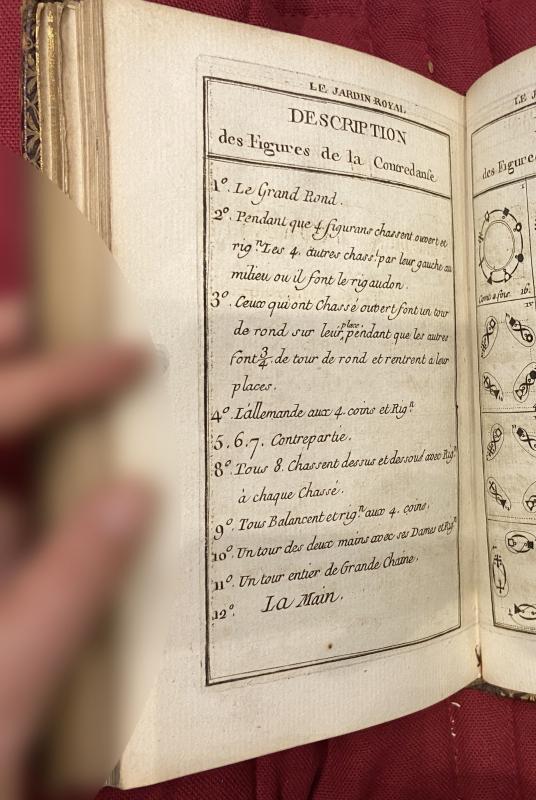 LE JARDIN ROYAL
DESCRIPTION
des Figures de la Contredanse
1°. Le Grand Rond.
2°. Pendant que 4 figurans chassent ouvert et
rig.ⁿ Les 4. autres chass.ᵗ par leur gauche au
milieu ou il font le rigaudon.
3°. Ceux qui ont Chassé ouvert font un tour
de rond sur leur place, pendant que les autres
font 3/4 de tour de rond et rentrent a leur
places.
4°. L'allemande aux 4. coins et Rig.ⁿ
5. 6. 7. Contrepartie.
8°. Tous 8. Chassent dessus et dessous avec Rig.ⁿ
à chaque Chassé.
9°. Tous Balancent et rig.ⁿ aux 4. coins.
10°. Un tour des deux mains avec ses Dames et Rig.ⁿ
11°. Un tour entier de Grande Chaine.
12°. La Main.
LE J
des Figure
1
16.
IV